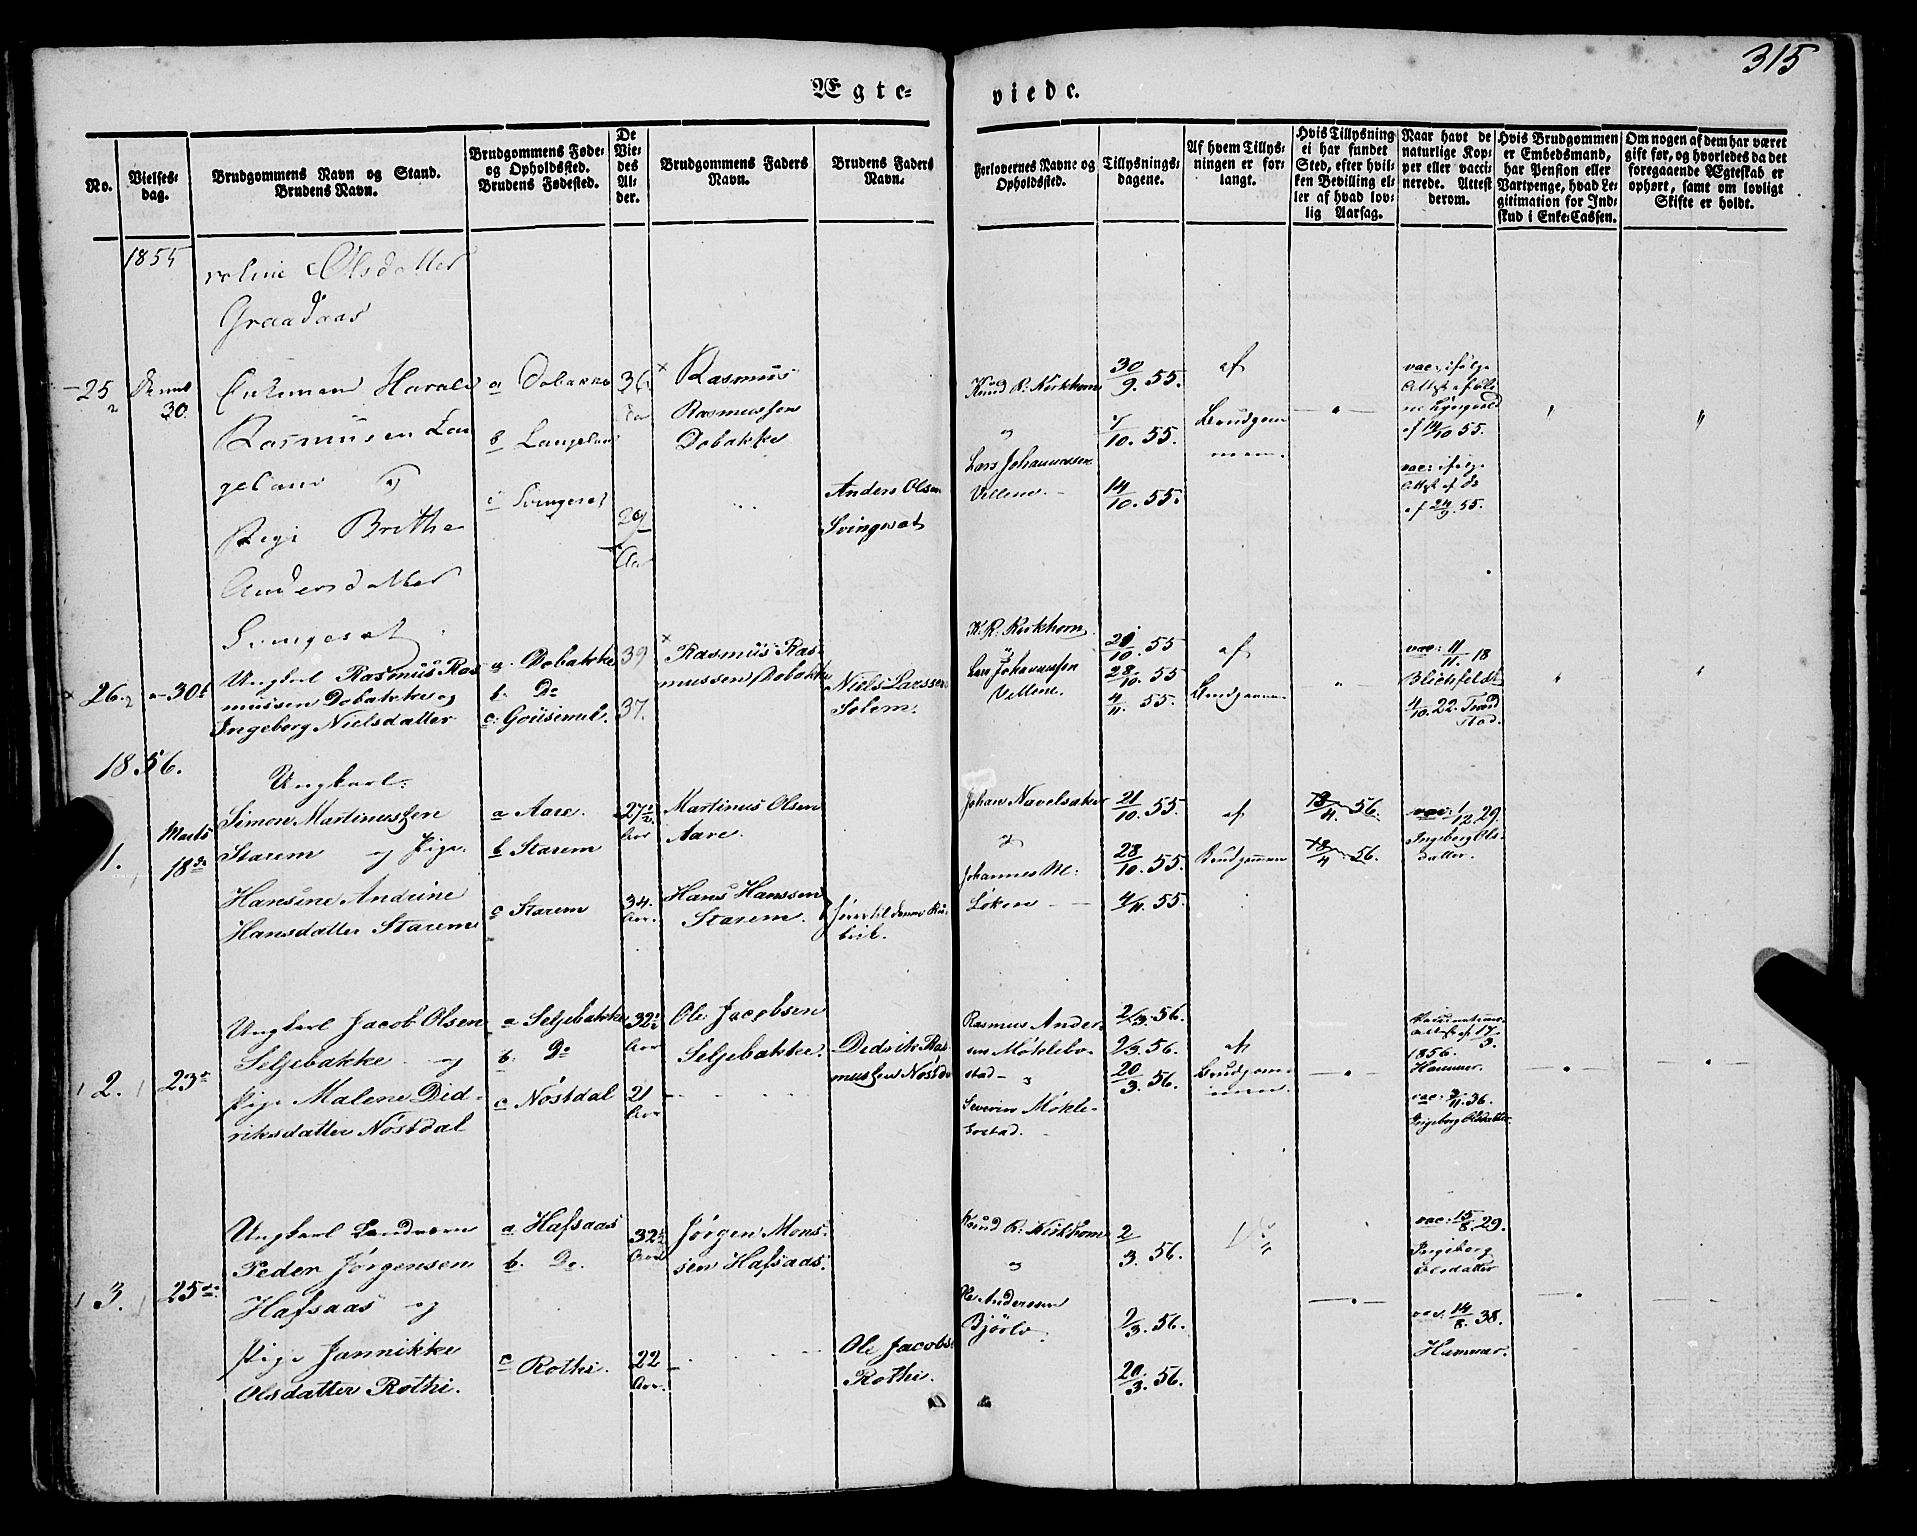 315
Ægte= viede.
No.
Vielses=
dag.
Brudgommens Navn og Stand.
Brudens Navn.
Brudgommens Føde=
og Opholdssted.
Brudens Fødested.
De
Vie=
des
Al=
der.
Brudgommens Faders
Navn.
Brudens Faders
Navn.
Forlovernes Navne og
Opholdssted.
Tillysnings=
dagene.
Af hvem Tillys=
ningen er for=
langt.
Hvis Tillysning
ei har fundet
Sted, efter hvil=
ken Bevilling el=
ler af hvad lov=
lig Aarsag.
Naar havt de
naturlige Kop=
per eller vacci=
nerede. Attest
derom.
Hvis Brudgommen
er Embedsmand,
har Pension eller
Vartpenge, hvad Le=
gitimation for Ind=
skud i Enke=Cassen.
Om nogen af dem har været
gift før, og hvorledes da det
foregaaende Ægteskab er
ophørt, samt om lovligt
Skifte er holdt.
1855
Olsdatter
25
30
Enkeman
Rasmusen Lan
geland og
Pige Brithe
Andersdatter
Svingeset
a Dobakke
b Langeland
c Svingeset
36
Aar
29
Aar
Rasmus
Rasmussen
Dobakke
Anders Olsen
Svingset
Knud R. Kirkhorn
og
Lars Johannessen
Vellene.
30/9. 55.
7/10. 55.
14/10. 55.
af
Brudgom
men.
vac: ifølge
Attest af
af 14/10 55.
vac: ifølge
Attest af
af 24/9. 55.
26. 30t
Ungkarl Rasmus Ras
mussen Dobakke og
Ingeborg Nielsdatter
a. Dobakke
b. Do
39
37.
Rasmus Ras=
mussen Dobakke
Niels Larssen
Solem.
K. R. Kirkhorn
og
Lars Johannessen
Vellene.
21/10. 55
28/10. 55
4/11. 55.
af
Brudgommen
vac: 11/11. 18
Blichfeldt
4/10. 22.
1856.
1.
Marts
18de
Ungkarl:
Simon Martinussen
Starem og Pige
Hansine Andrine
Hansdatter Starem
a Aare.
b Starem
c Starem
27½
Aar
34.
Aar.
Martinus Olsen
Aare.
Hans Hanssen
Starem.
Johan Navelsaker
og
Johannes M:
Løken
21/10. 55
28/10. 55
4/11. 55.
af
Brudgommen
18/4. 56.
18/4. 56.
vac: 1/12 29.
Ingeborg Ols
datter.
2. 23de
Ungkarl Jacob Olsen
Seljebakke og
Pige Malene Did=
riksdatter Nöstdal
a Seljebakke
b. Do
c Nöstdal
32½
Aar
21
Aar
Ole Jacobsen
Seljebakke.
Didrik Ras
mussen Nöstd
Rasmus Ander=
sen Möklebo=
stad og
Severin Mökle=
bostad.
2/3. 56.
2/3. 56.
20/3. 56.
af
Brudgom=
men.
Vaccinations
attest af 17/3.
1856.
Hammer.
vac: 3/11. 36.
Ingeborg Olsdatter
3. 25de
Ungkarl Landværn
Peder Jörgensen
Hafsaas og
Pige Jannikke
Olsdatter Rothi.
a Hafsaas
b. Do.
c Rothi.
32½
Aar
22
Aar.
Jørgen Mons=
sen Hafsaas.
Ole Jacobs.
Rothi.
Knud R. Kirkhorn
og
Ole Anderssen
Bjørlo.
2/3. 56.
2/3. 56.
20/3. 56.
vac: 15/8. 29.
Ingeborg
Olsdatter
vac. 14/8. 38.
Hammer.